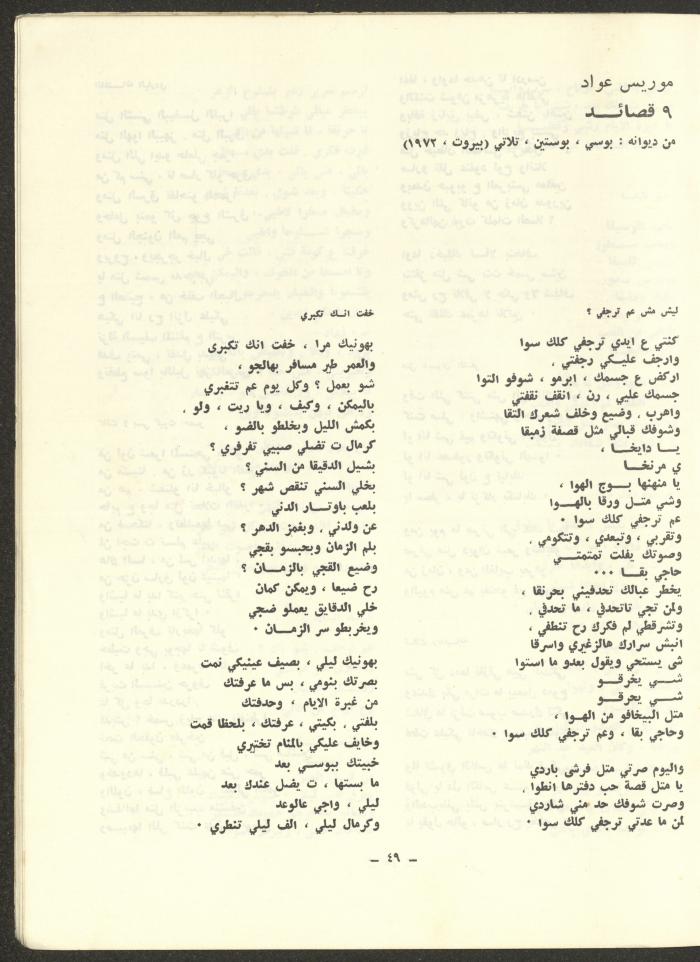 موريس عواد
٩ قصائـــد
من ديوانه : بوسي ، بوستين ، تلاتي (بيروت ، ١٩٧٢)
ليش مش عم ترجفي ؟
كنتي ع ايدي ترجفي كلك سوا
وارجف عليـكي رجفتي ،
اركض ع جسمك ، ابرمو ، شوفو التوا
جسمك علیي ، رن ، انقف نقفتي
واهرب ، وضيع وخلف شعرك التقا
وشوفك قبالي مثل قصفة زمبقا
يـــا دايخـا ،
ي مرنخـا
يا منهنها بـــوج الهوا ،
وشي متـل ورقا بالهــوا
عم ترجفي كلك سوا ٠
وتقربي ، وتبعدي ، وتتكومي ،
وصوتك يفلت تمتمتـــي
حاجي بقــا ٠٠٠
يخطر عبالك تحدفيني بحرنقا ،
ولمن تجي تاتحدفي ، ما تحدفي ،
وتشرقطي لم فكرك رح تنطفي ،
انبش سرارك هالزغيري واسرقا
شى يستحي ويقول بعدو ما استوا
شـــي يخرقــو
شـــي يحرقــو
متل البيخافو من الهــوا ،
وحاجي بقا ، وعم ترجفي كلك سوا ٠
واليوم صرتي متل فرشى باردي
يا متل قصة حب دفترها انطوا ،
وصرت شوفك حد مني شاردي
لمن ما عدتي ترجفي كلك سوا ٠
خفت انــك تكبري
بهونيك مرا ، خفت انك تكبرى
والعمر طير مسافر بهالجو ،
شو بعمل ؟ وكل يوم عم تتغبري
باليمكن ، وكيف ، ويا ريت ، ولو ،
بكمش الليل وبخلطو بالضو ،
كرمال ت تضلي صبيي تفرفري ؟
بشيل الدقيقا من السني ؟
بخلي السني تنقص شهر ؟
بلعب باوتــار الدني
عن ولدني ، وبغمز الدهر ؟
بلم الزمان وبحبسو بقجي
وضيع القجي بالزمــان ؟
رح ضيعا ، ويمكن كمان
خلي الدقايق يعملو ضجي
ويخربطو سر الزمــان ٠
بهونيك ليلي ، بصيف عينيكي نمت
بصرتك بنومي ، بس ما عرفتك
من غبرة الايام ، وحدفتك
بلفتي ، بكيتي ، عرفتك ، بلحظا قمت
وخايف عليكي بالمنام تختيري
خبيتك ببوســي بعد
ما بستها ، ت يضل عندك بعد
ليلي ، واجي عالوعد
وكرمال ليلي ، الف ليلي تنطري ٠
ــ ٤٩ ــ